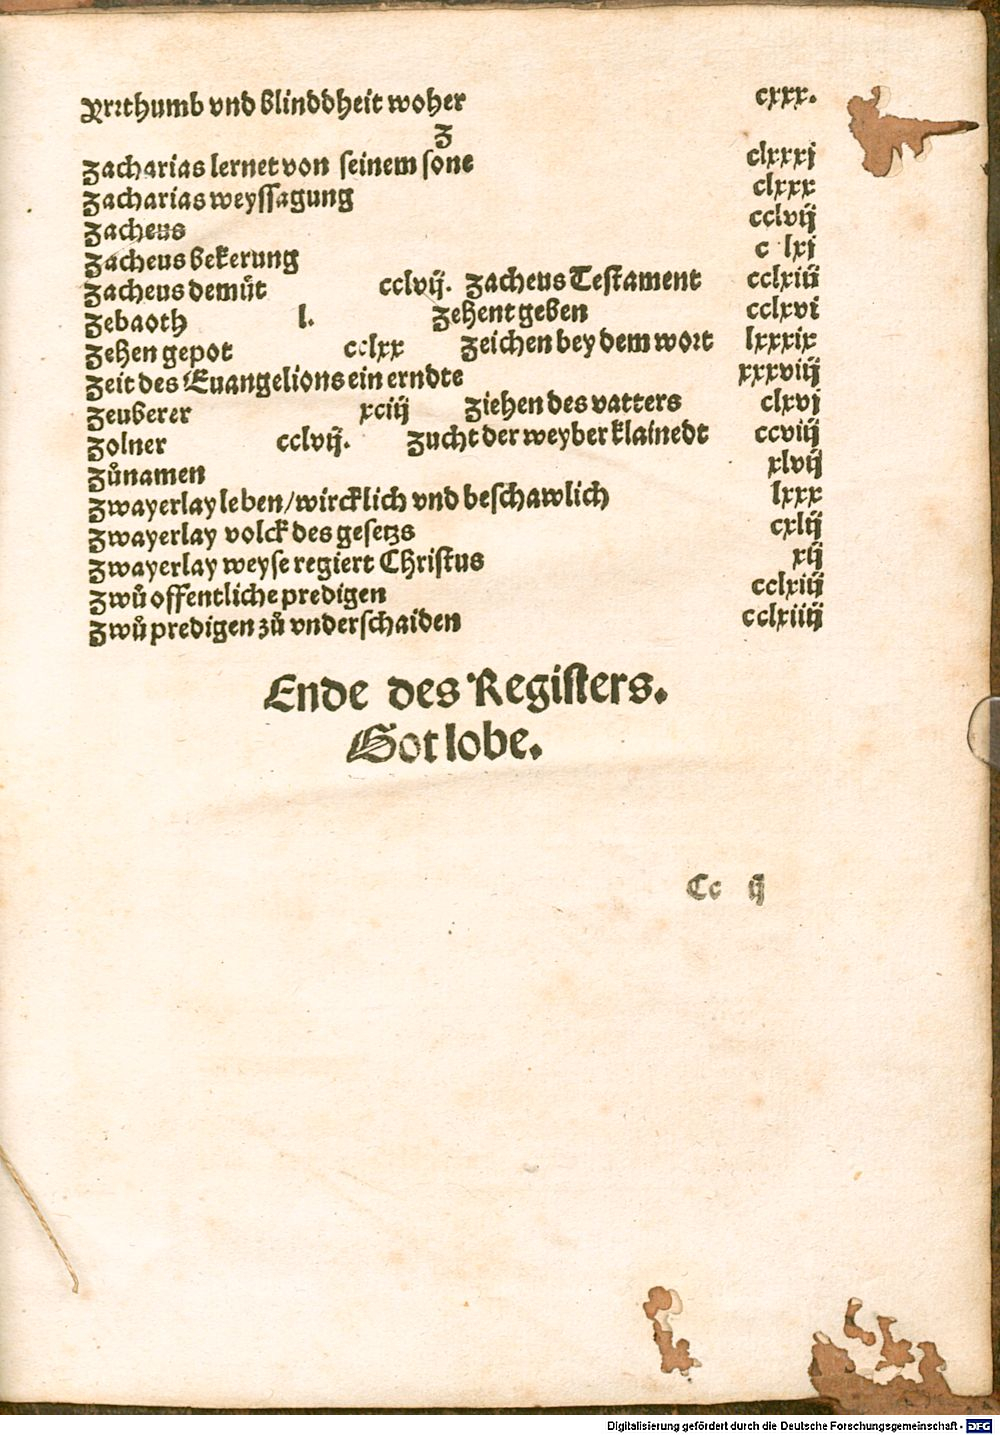 Yrrthumb vnd blinddheit woher cxxx.
Z
Zacharias lernet von seinem sone clxxxj
Zacharias weyssagung clxxx
Zacheus cclvij
Zacheus bekerung c lxj
Zacheus demüt cclvij. Zacheus Testament cclxiii
Zebaoth l. Zehent geben cclxvi
Zehen gepot cclxx Zeichen bey dem wort lxxxix
Zeit des Euangelions ein erndte xxxviij
Zeuberer xciij Ziehen des vatters clxvj
Zolner cclvij. Zucht der weyber klainedt ccviij
Zůnamen xlvij
Zwayerlay leben/wircklich vnd beschawlich lxxx
Zwayerlay volck des gesetzs cxlij
Zwayerlay weyse regiert Christus xij
Zwů offentliche predigen cclxiij
Zwů predigen zů vnderschaiden cclxiiij
Ende des Registers.
Got lobe.
Cc ij
Digitalisierung gefördert durch die Deutsche Forschungsgemeinschaft - DFG